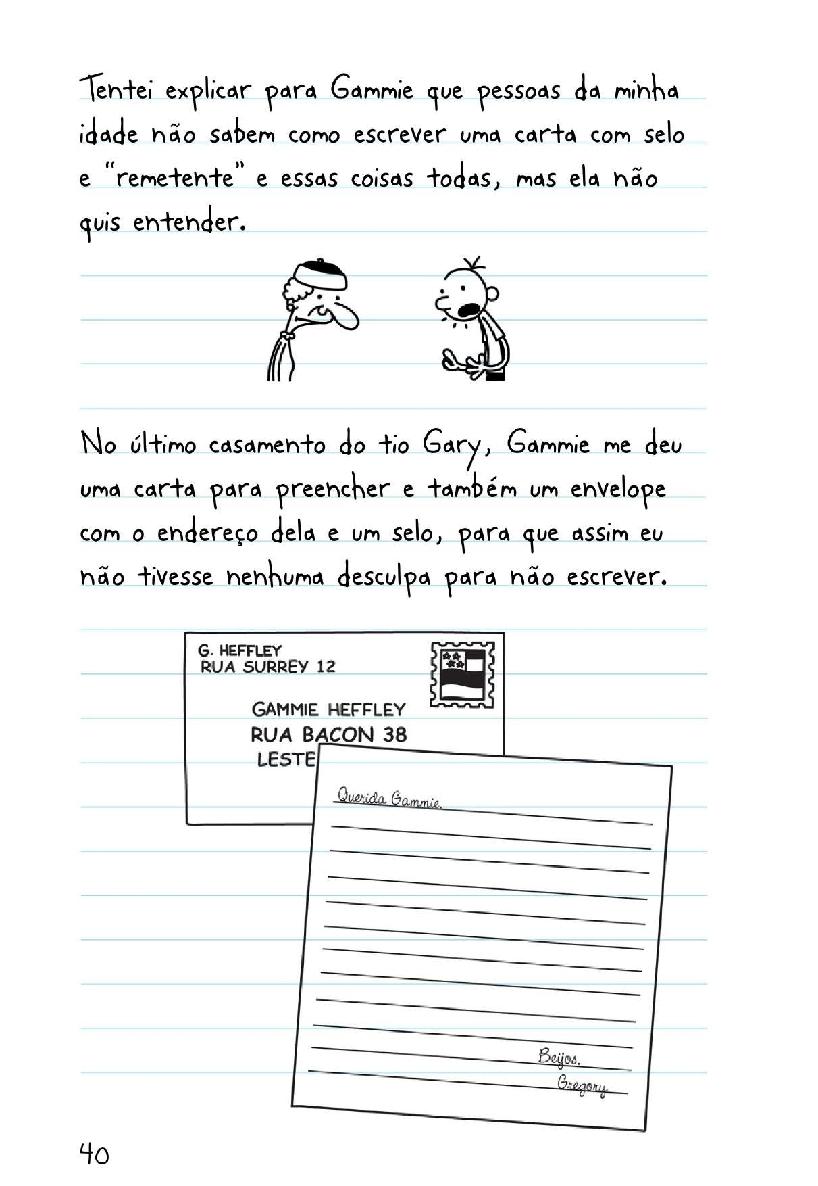 Tentei explicar para Gammie que pessoas da minha
idade não sabem como escrever uma carta com selo
e "remetente" e essas coisas todas, mas ela não
quis entender.
No último casamento do tio Gary, Gammie me deu
uma carta para preencher e também um envelope
com o endereço dela e um selo, para que assim eu
não tivesse nenhuma desculpa para não escrever.
G. HEFFLEY
RUA SURREY 12
GAMMIE HEFFLEY
RUA BACON 38
LESTE
Querida Gammie,
Beijos,
Gregory
40